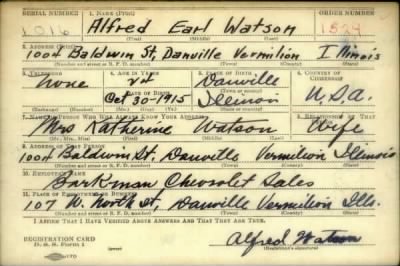 SERIAL NUMBER 1. NAME (Print) ORDER NUMBER
1016 Alfred Earl Watson 1524
(First) (Middle) (Last)
2. ADDRESS (Print)
1004 Baldwin St, Danville Vermilion Illinois
(Number and street or R. F. D. number) (Town) (County) (State)
3. TELEPHONE 4. AGE IN YEARS 5. PLACE OF BIRTH 6. COUNTRY OF CITIZENSHIP
None 24 Danville
(Town or county)
DATE OF BIRTH
Oct 30-1915 Illinois U.S.A.
(Exchange) (Number) (Mo.) (Day) (Yr.) (State or country)
7. NAME OF PERSON WHO WILL ALWAYS KNOW YOUR ADDRESS 8. RELATIONSHIP OF THAT PERSON
Mrs Katherine Watson Wife
(Mr., Mrs., Miss) (First) (Middle) (Last)
9. ADDRESS OF THAT PERSON
1004 Baldwin St, Danville Vermilion Illinois
(Number and street or R. F. D. number) (Town) (County) (State)
10. EMPLOYER'S NAME
Barkman Chevrolet Sales
11. PLACE OF EMPLOYMENT OR BUSINESS
107 W. North St, Danville Vermilion Ills.
(Number and street or R. F. D. number) (Town) (County) (State)
I AFFIRM THAT I HAVE VERIFIED ABOVE ANSWERS AND THAT THEY ARE TRUE.
REGISTRATION CARD
D. S. S. Form 1 Alfred Watson
(Registrant's signature)